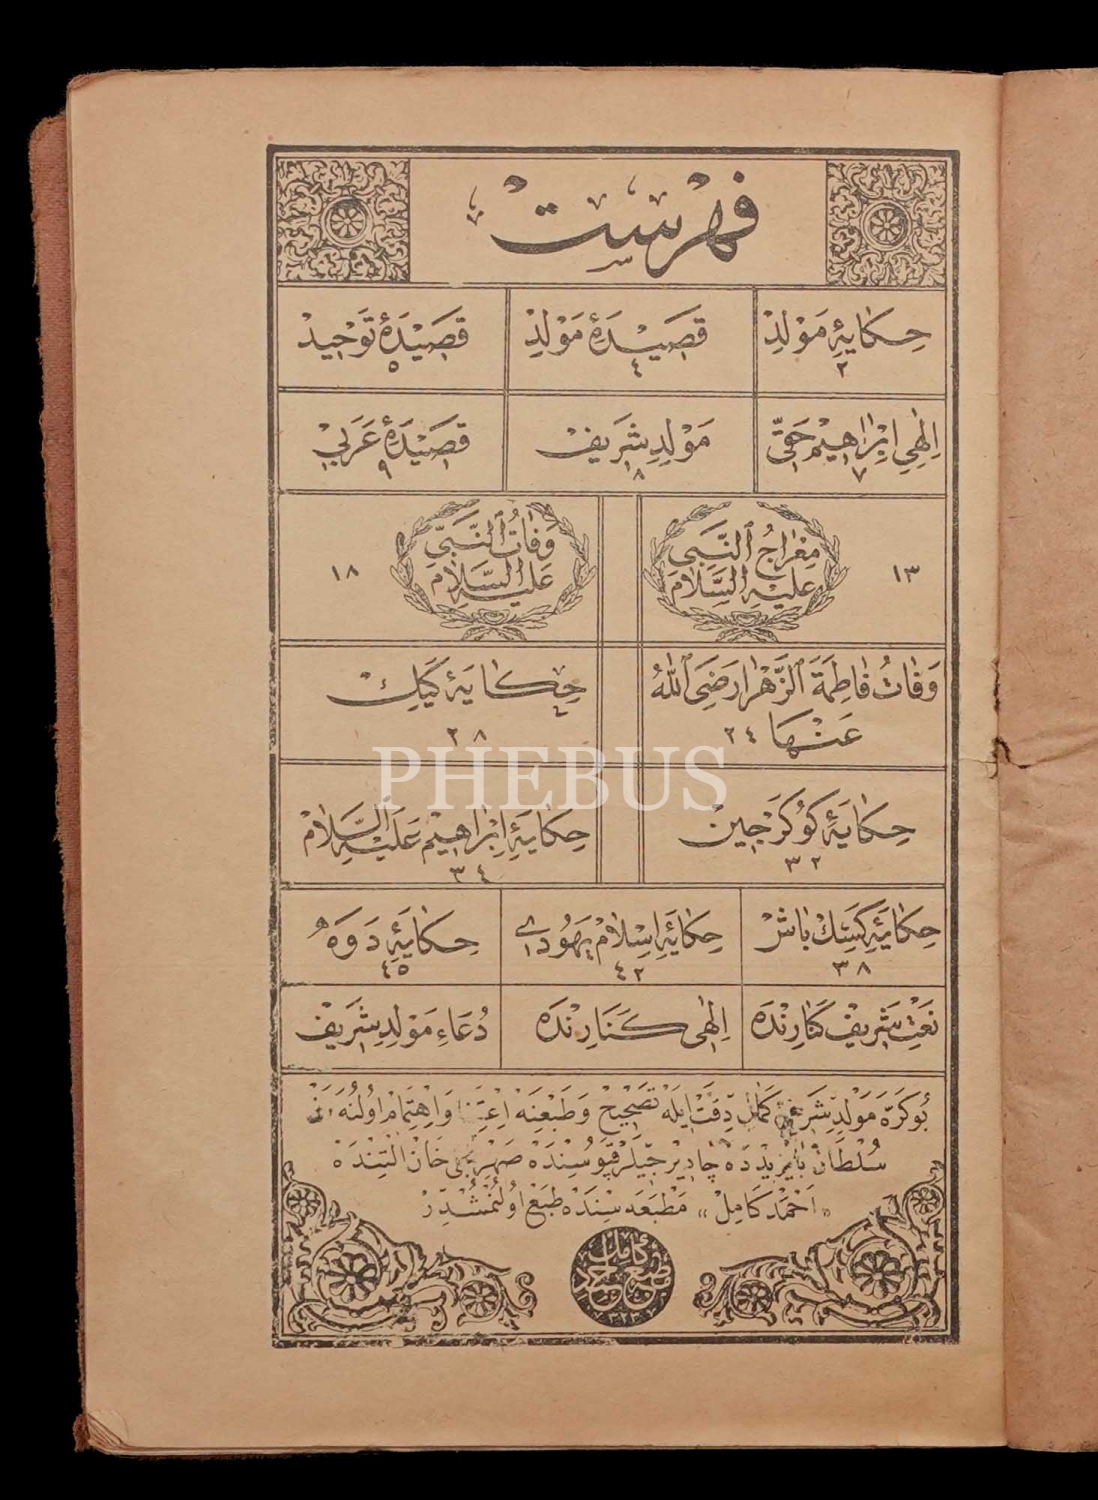 فهرست
حِكَايَهٔ مَوْلِدْ
٢
قَصِيْدَهٔ مَوْلِدْ
٤
قَصِيْدَهٔ تَوْحِيد
٥
اِلٰهِي اِبْرَاهِيمْ حَقِّي
٧
مَوْلِدِ شَرِيفْ
٨
قَصِيْدَهٔ عَرَبِي
٩
مِعْرَاجُ النَّبِي
عَلَيْهِ السَّلَامْ
١٣
وَفَاتُ النَّبِيِّ
عَلَيْهِ السَّلَامْ
١٨
وَفَاتُ فَاطِمَةَ الزَّهْرَا رَضِيَ اللهُ
عَنْهَا ٢٤
حِكَايَهٔ كَيِكْ
٢٨
حِكَايَهٔ كُوكَرْجِينْ
٣٢
حِكَايَهٔ اِبْرَاهِيمْ عَلَيْهِ السَّلَامْ
٣٤
حِكَايَهٔ كَسِكْ بَاشْ
٣٨
حِكَايَهٔ اِسْلَامْ يَهُودِي
٤٢
حِكَايَهٔ دَوَه
٤٥
نَعْتِ شَرِيفْ كَنَارِنْدَه
اِلٰهِي كَنَارِنْدَه
دُعَاءِ مَوْلِدِ شَرِيفْ
بُو كَرَّه مَوْلِدِ شَرِيفْ كَمَالِ دِقَّتْ اِيلَه تَصْحِيحْ وَطَبْعِنَه اِعْتِنَا وَاِهْتِمَامْ اُولُنَه رَقْ
سُلْطَانْ بَايَزِيدْدَه چَادِيرْجِيلَرْ قَپُوسُنْدَه خَانْ اَلْتِنْدَه
«اَحْمَدْ كَامِلْ» مَطْبَعَه سِنْدَه طَبْعْ اُولُنْمُشْدِرْ
مطبعه احمد كامل
PHEBUS